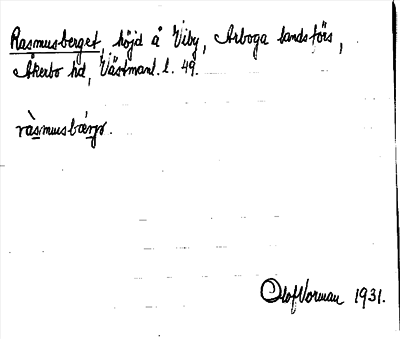 Rasmusberget, höjd å Viby, Arboga landsförs,
Åkerbo hd, Västmanl. l. 49.
ràsmusbærjə.
Olof Norman 1931.